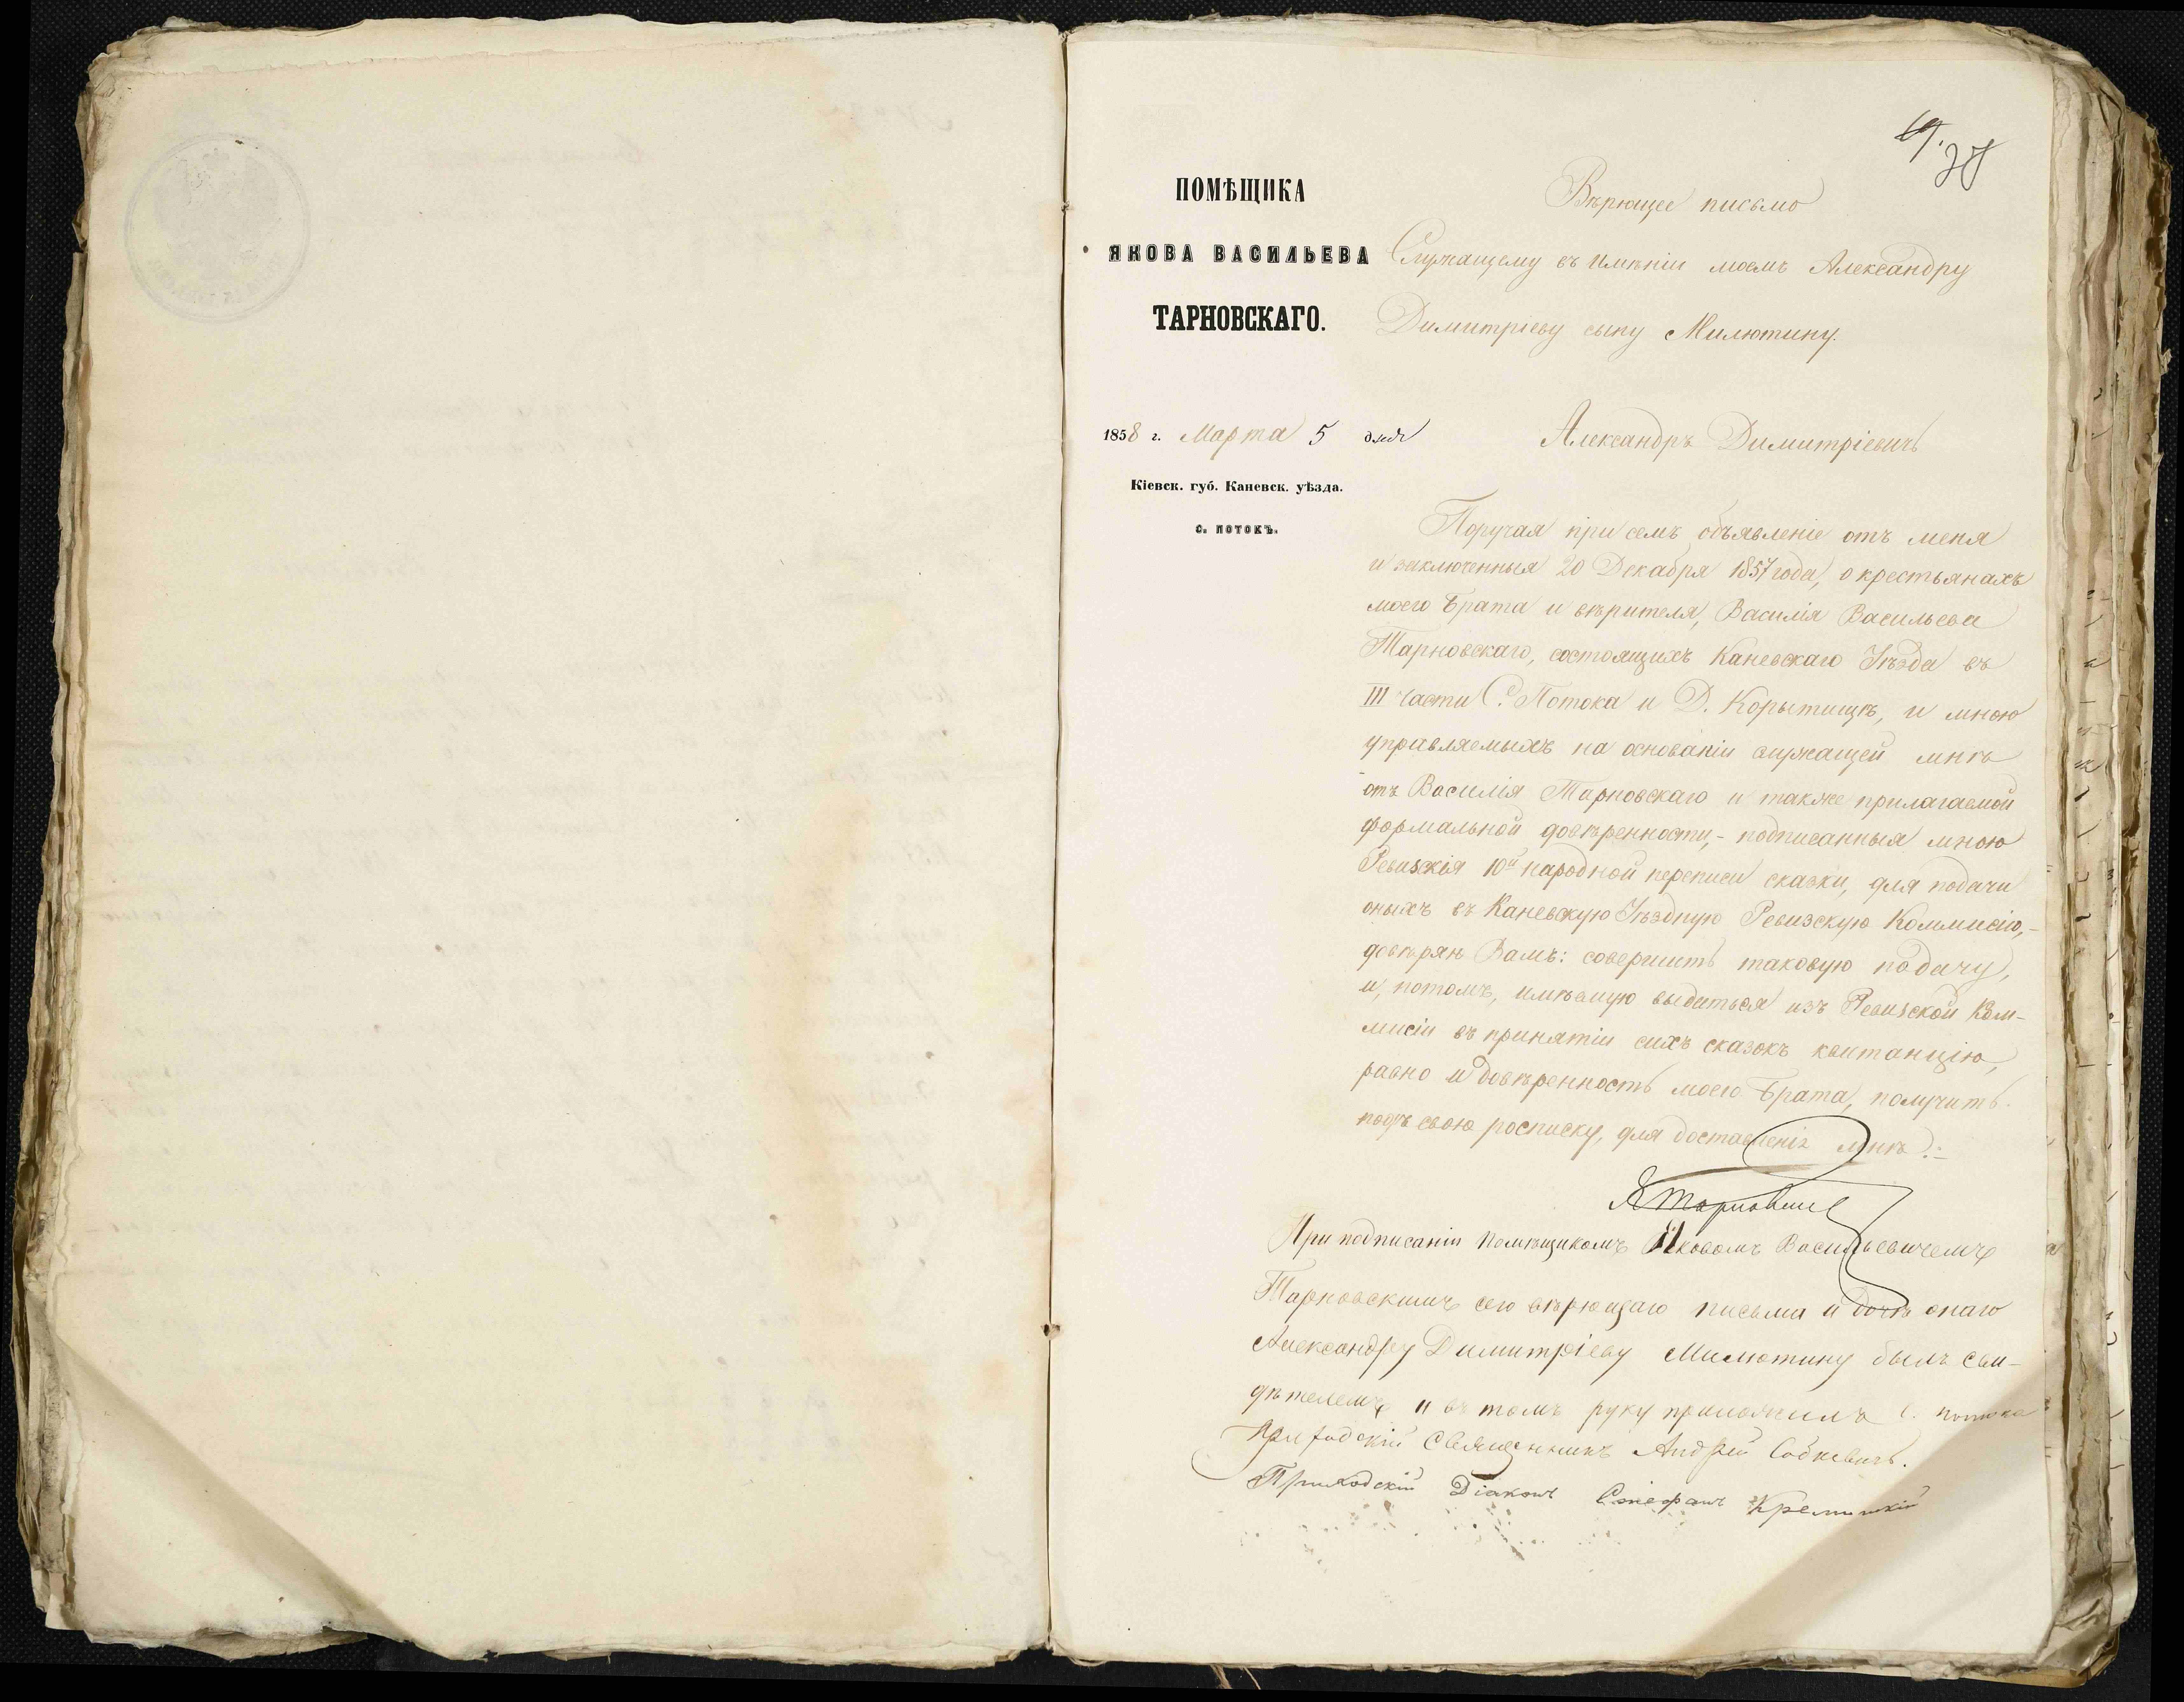 ПОМѢЩИКА
ЯКОВА ВАСИЛЬЕВА
ТАРНОВСКАГО.
1858 г. Марта 5 дня
Кіевск. губ. Каневск. уѣзда.
с. потокъ.
Вѣрющее письмо
Служащему въ имѣніи моемъ Александру
Димитріеву сыну Милютину.
Александръ Димитріевичъ
Поручая при семъ объявленіе отъ меня
и заключенныя 20 Декабря 1857 года, о крестьянахъ
моего Брата и вѣрителя, Василія Васильева
Тарновскаго, состоящихъ Каневскаго Уѣзда въ
III части С. Потока и Д. Корытищѣ, и мною
управляемыхъ на основаніи служащей мнѣ
отъ Василія Тарновскаго и также прилагаемой
формальной довѣренности,- подписанныя мною
Ревизскія 10й народной переписи сказки, для подачи
оныхъ въ Каневскую Уѣздную Ревизскую Коммисію,-
довѣряю Вамъ: совершить таковую подачу,
и, потомъ, имѣемую выдаться изъ Ревизской Ком-
мисіи въ принятіи сихъ сказокъ квитанцію,
равно и довѣренность моего Брата, получить
подъ свою росписку, для доставленія мнѣ.:-
Я Тарновскій
При подписаніи помѣщикомъ Яковомъ Васильевичемъ
Тарновскимъ сего вѣрющаго письма и дачѣ онаго
Александру Димитріеву Милютину былъ сви-
дѣтелемъ и въ томъ руку приложилъ С. Потока
Приходскій Священникъ Андрей Собкевичъ.
Приходскій Діаконъ Стефанъ